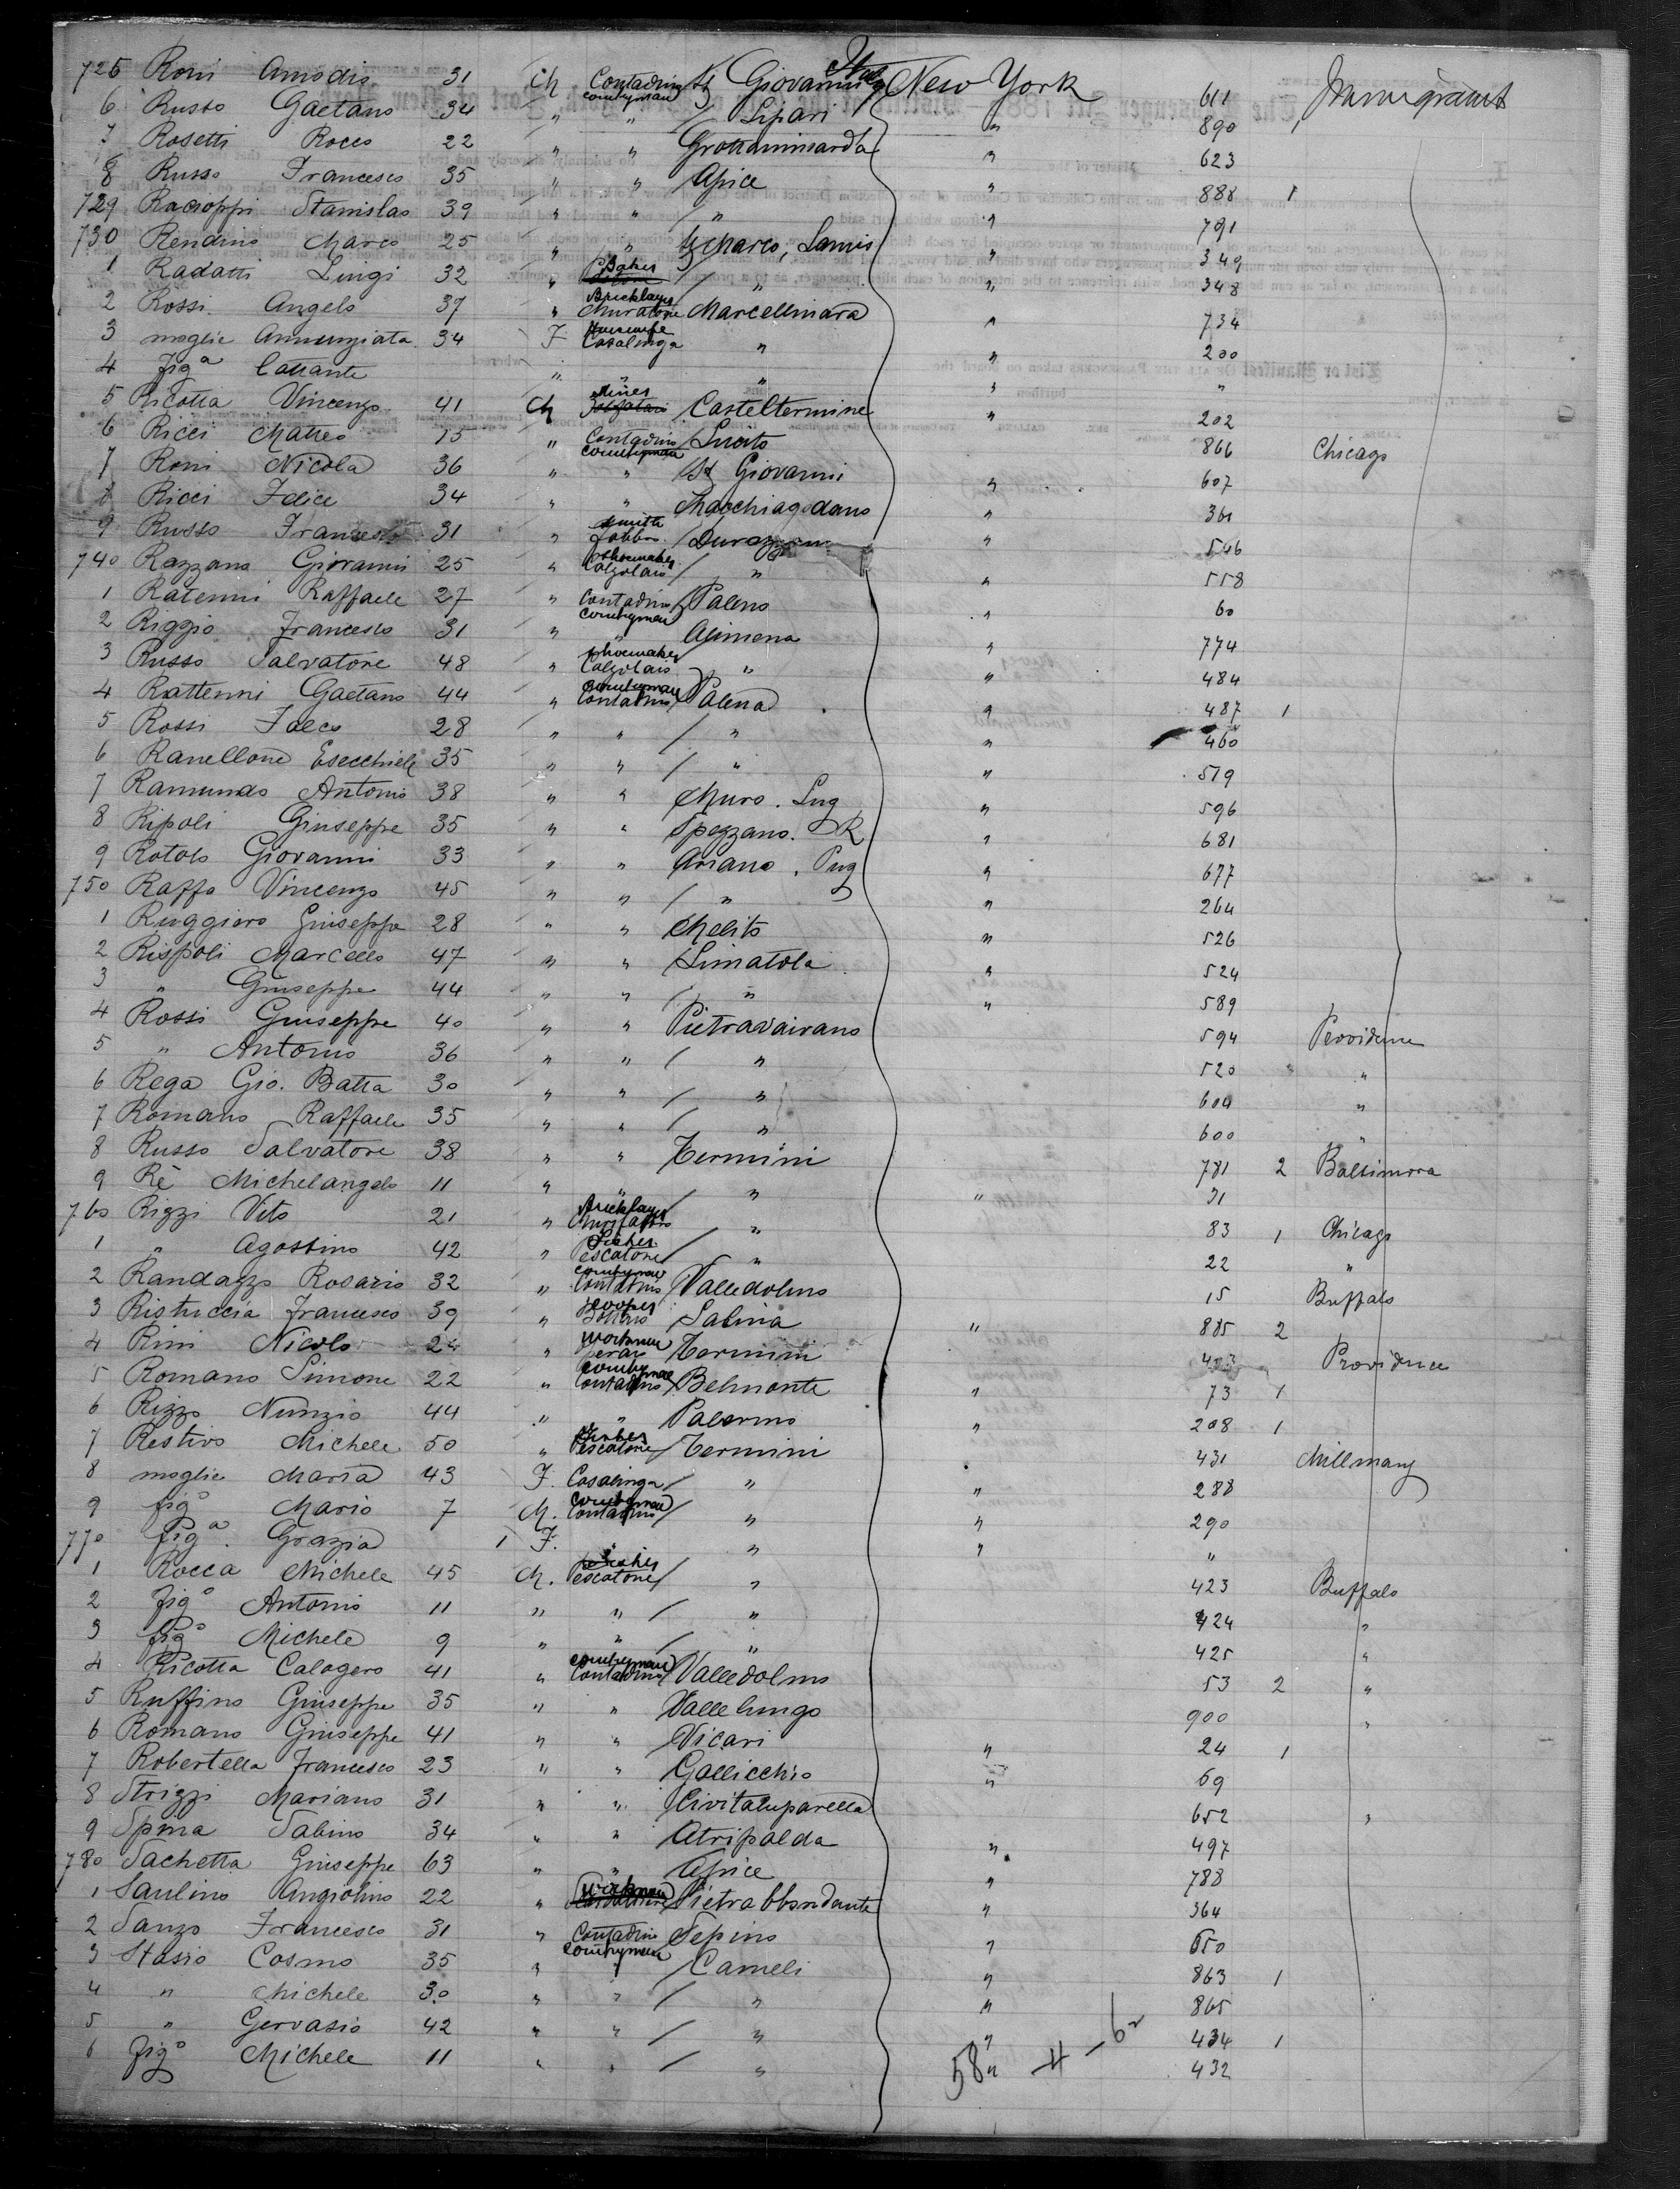 725 Roni Amodio 31 M Contadino countryman St Giovanni Italy New York 611 Immigrant
6 Russo Gaetano 34 " " / Lipari " 890 1
7 Rosetti Rocco 22 " " Grottaminarda " 623
8 Russo Francesco 35 " " / Apice " 888 1
729 Racioppi Stanislao 39 " " / " " 791
730 Rendino Marco 25 " " S Marco, Lamis " 349
1 Radatti Luigi 32 " Baker / " " 348
2 Rossi Angelo 37 " Bricklayer Muratore Marcellinara " 734
3 moglie Annunziata 34 F Housewife Casalinga " " 200
4 figa lattante " " " " "
5 Ricotta Vincenzo 41 M Miner Casteltermine " 202
6 Ricci Matteo 15 " Contadino countryman / Lucito 866 Chicago
7 Roni Nicola 36 " " / St Giovanni " 607
8 Ricci Felice 34 " " Macchiagodano " 361
9 Russo Francesco 31 " Smith fabbro / " 546
740 Razzano Giovanni 25 " Shoemaker Calzolaio / " " 558
1 Ratenni Raffaele 27 " Contadino countryman Paleno " 60
2 Riggio Francesco 31 " " Alimena " 774
3 Russo Salvatore 48 " shoemaker Calzolaio " " 484
4 Rattenni Gaetano 44 " countryman Contadino Palena " 487 1
5 Rossi Falco 28 " " / " " 460
6 Ranellone Esecchiele 35 " " / " " 519
7 Ramundo Antonio 38 " " Muro. Lug " 596
8 Ripoli Giuseppe 35 " " Spezzano. R " 681
9 Rotolo Giovanni 33 " " Ariano. Pug " 677
750 Raffa Vincenzo 45 " " / " " 264
1 Ruggiero Giuseppe 28 " " Melito " 526
2 Rispoli Marcello 47 " " / Limatola " 524
3 " Giuseppe 44 " " / " " 589
4 Rossi Giuseppe 40 " " Pietravairano 594 Providence
5 " Antonio 36 " " / " 520 " "
6 Rega Gio. Batta 30 " " / " 604 "
7 Romano Raffaele 35 " " / " 600 "
8 Russo Salvatore 38 " " Termini 781 2 Baltimora
9 Rè Michelangelo 11 " " / " " 31
760 Rizzi Vito 21 " Bricklayer Muratore / " 83 1 Chicago
1 " Agostino 42 " Fisher Pescatore / " 22 "
2 Randazzo Rosario 32 " countryman Contadino / Valledolmo 15 Buffalo
3 Ristuccia Francesco 39 " Cooper Bottaio / Salina " 885 2
4 Rini Nicolo 24 " workman / Termini Providence
5 Romano Simone 22 " countryman Contadino Belmonte " 73 1
6 Rizzo Nunzio 44 " " Palermo " 208 1
7 Restivo Michele 50 " Fisher Pescatore / Termini 431
8 moglie Maria 43 F. Casalinga / " " 288
9 figo Mario 7 M. countryman Contadino / " " 290
770 figa Grazia 1 F. " " " "
1 Rocca Michele 45 M. Fisher Pescatore / " 423 Buffalo
2 figo Antonio 11 " " / " 424 "
3 figo Michele 9 " " / " 425 "
4 Ricotta Calogero 41 " countryman Contadino / Valledolmo 53 2 "
5 Ruffino Giuseppe 35 " " Vallelungo 900 "
6 Romano Giuseppe 41 " " / Vicari " 24 1
7 Robertella Francesco 23 " " Gallicchio " 69
8 Strizzi Mariano 31 " " / Civitaluparella 652 "
9 Spina Sabino 34 " " Atripalda " 497
780 Sachetta Giuseppe 63 " " Apice " 788
1 Saulino Angiolino 22 " workman Pietrabbondante " 364
2 Sanzo Francesco 31 " Contadino countryman Sepino " 650
3 Stasio Cosmo 35 " " / Cameli " 863 1
4 " Michele 30 " " / " " 865
5 " Gervasio 42 " " / " " 434 1
6 figo Michele 11 " " / " " 432
58 4 - 62